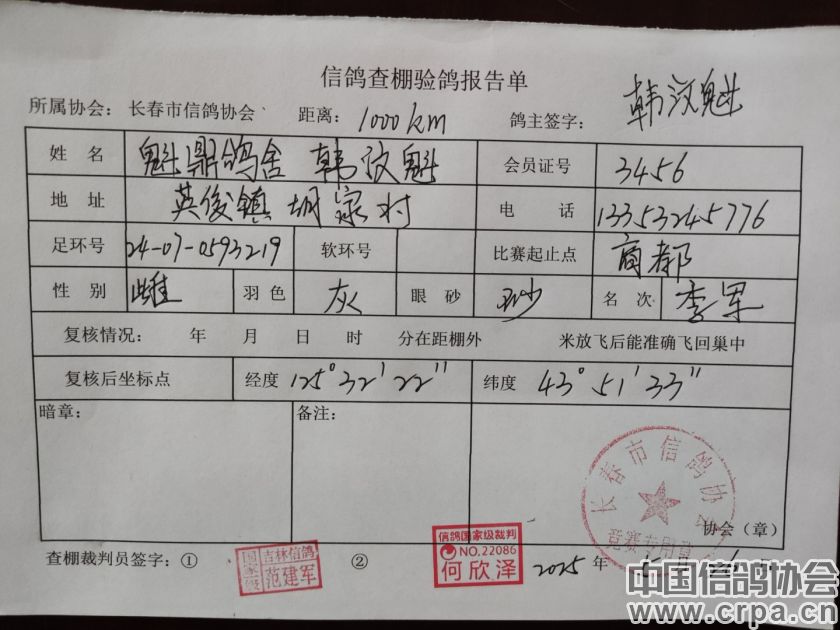 信鸽查棚验鸽报告单
所属协会：长春市信鸽协会 距离：1000km 鸽主签字：韩汶魁
姓名 魁鼎鸽舍 韩汶魁 会员证号 3456
地址 英俊镇胡家村 电话 13353245776
足环号 24-07-0593219 软环号 比赛起止点 商都
性别 雌 羽色 灰 眼砂 砂 名次 季军
复核情况： 年 月 日 时 分在距棚外 米放飞后能准确飞回巢中
复核后坐标点 经度 125°32'22" 纬度 43°51'33"
暗章： 备注：
长春市信鸽协会
竞赛专用章
协会（章）
查棚裁判员签字：① 国家级 吉林信鸽 范建军 ② 信鸽国家级裁判 NO.22086 何欣泽 2025 年 月
中国信鸽协会
www.crpa.cn